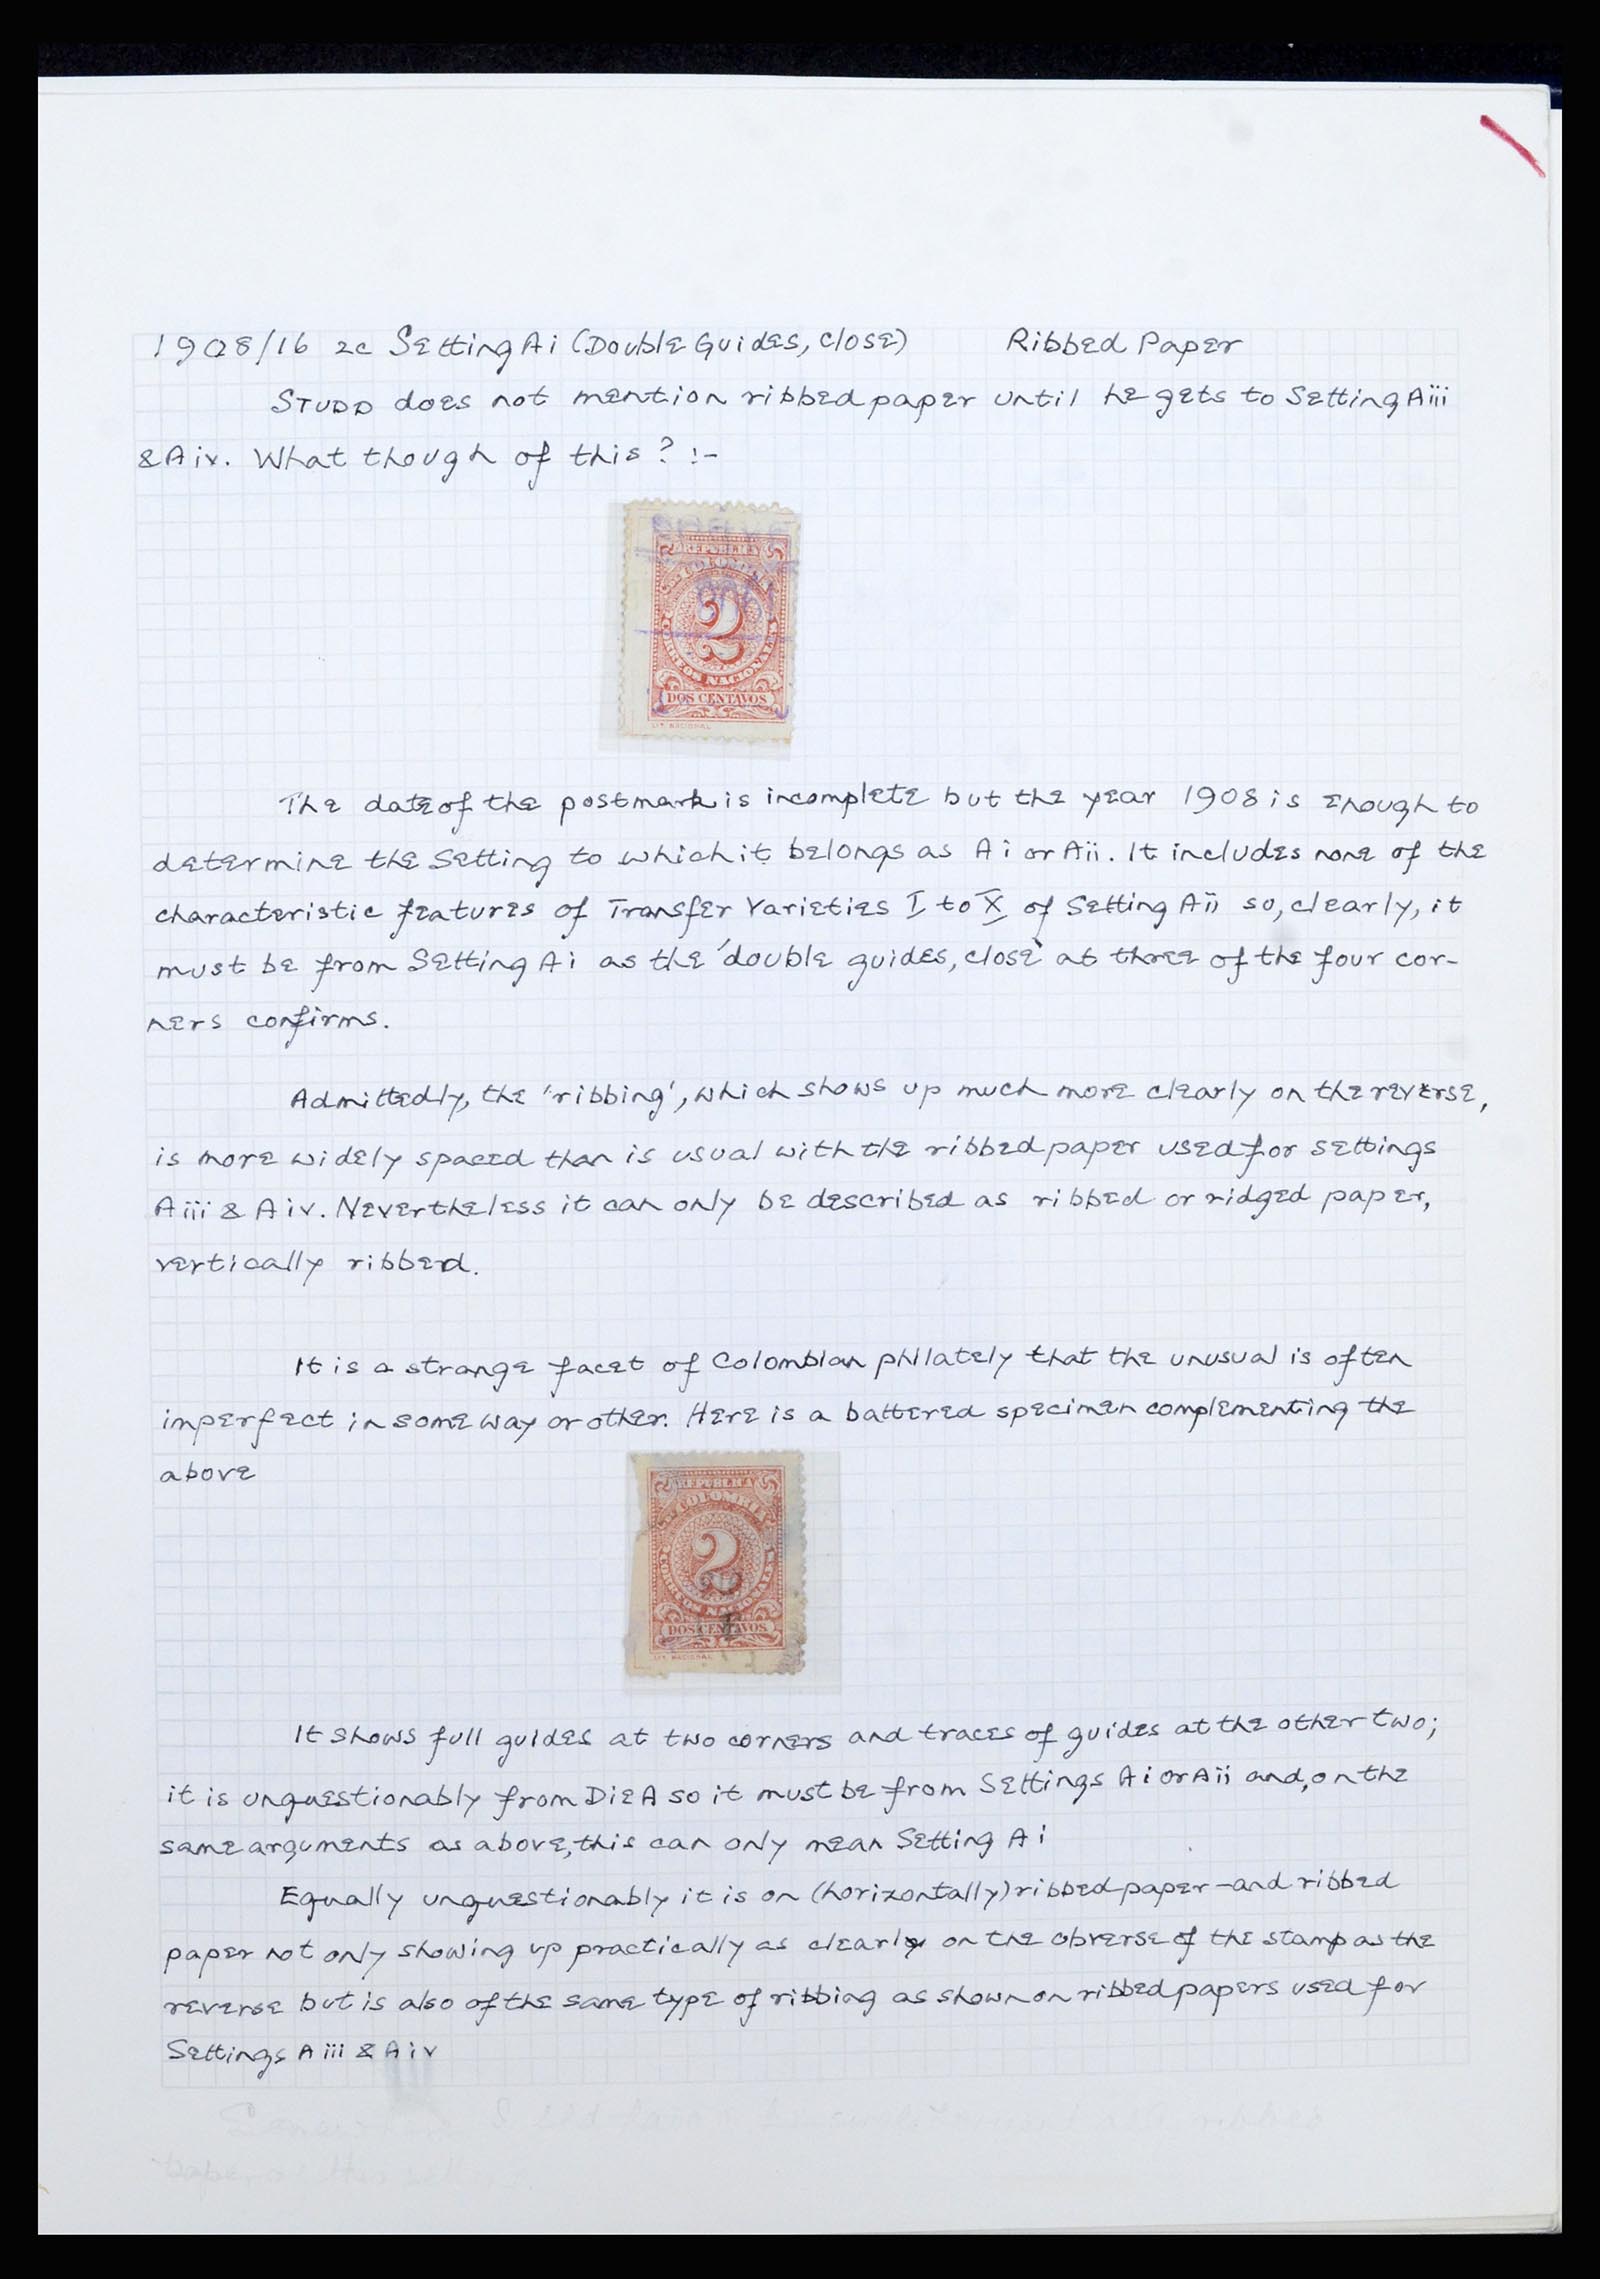 1908/16 2c Setting Ai (Double Guides, close) Ribbed Paper
STUDD does not mention ribbed paper until he gets to Setting Aiii
& Aiv. What though of this? :-
REPUBLICA
COLOMBIA
2
CORREOS NACIONALES
DOS CENTAVOS
LIT. NACIONAL
The date of the postmark is incomplete but the year 1908 is enough to
determine the setting to which it belongs as Ai or Aii. It includes none of the
characteristic features of Transfer Varieties I to X of Setting Aii so, clearly, it
must be from Setting Ai as the 'double guides, close' at three of the four cor-
ners confirms.
Admittedly, the 'ribbing', which shows up much more clearly on the reverse,
is more widely spaced than is usual with the ribbed paper used for settings
Aiii & Aiv. Nevertheless it can only be described as ribbed or ridged paper,
vertically ribbed.
It is a strange facet of Colombian philately that the unusual is often
imperfect in some way or other. Here is a battered specimen complementing the
above
REPUBLICA
COLOMBIA
2
CORREOS NACIONALES
DOS CENTAVOS
LIT. NACIONAL
It shows full guides at two corners and traces of guides at the other two;
it is unquestionably from Die A so it must be from Settings Ai or Aii and, on the
same arguments as above, this can only mean Setting Ai
Equally unquestionably it is on (horizontally) ribbed paper - and ribbed
paper not only showing up practically as clearly on the obverse of the stamp as the
reverse but is also of the same type of ribbing as shown on ribbed papers used for
Settings Aiii & Aiv